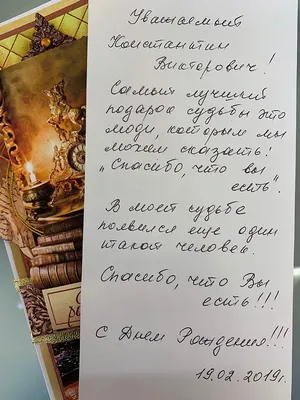 Уважаемый
Константин
Викторович!
Самый лучший
подарок судьбы это
люди, которым мы
можем сказать:
"Спасибо, что вы
есть".
В моей судьбе
появился еще один
такой человек.
Спасибо, что Вы
есть!!!
С Днем Рождения!!!
19.02.2019г.